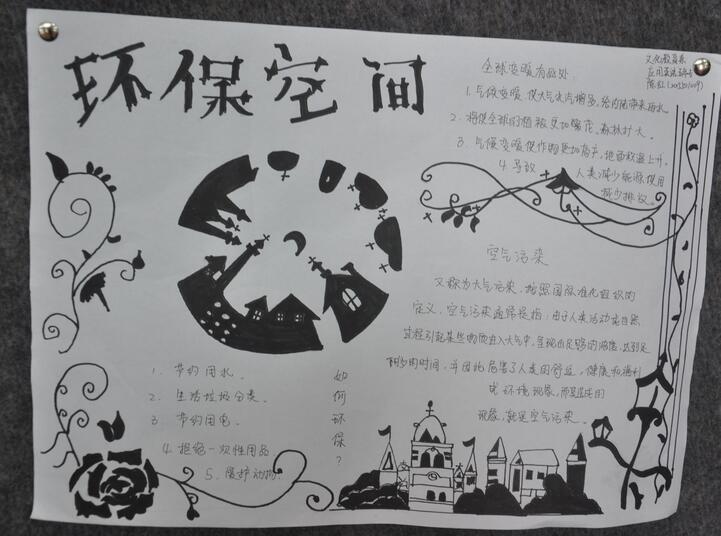 环保空间
文化教育系
全球变暖有益处:
1. 气候变暖,使大气水汽增多,给内陆带来雨水
2. 将使全球的植被更加繁茂,森林扩大。
3. 气候变暖使作物更加高产,地面积温上升。
4. 导致 人类减少能源使用
减少排放。
空气污染
又称为大气污染,按照国际标准化组织的
定义,空气污染通常是指:由于人类活动或自然
过程引起某些物质进入大气中,呈现出足够的浓度,达到足
够的时间,并因此危害了人类的舒适、健康和福利
或环境
现象,就是空气污染。
如何环保?
1. 节约用水。
2. 生活垃圾分类。
3. 节约用电。
4. 拒绝一次性用品
5. 爱护动物。